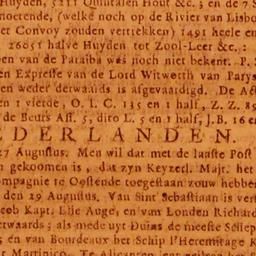 Huyden, 5211 Quintalen Hout &c. ; en de 7 S
moetende, (welke noch op de Rivier van Lisbo
et Convoy zouden vertrekken) 1491 heele en
26051 halve Huyden tot Zool-Leer &c. :
oen van de Paraiba was noch niet bekent. P. S
en Expresse van de Lord Witworth van Parys
en weder derwaards is afgevaardigt. De Act
en 1 vierde, O. I. C. 135 en 1 half, Z. Z. 89
de Beurs Ass. 5, dito L. 5 en 1 half, J.B. 16 en
EDERLANDEN.
27 Augustus. Men wil dat met de laaste Post
n gekoomen is, dat zyn Keyzerl. Majt. het
ompagnie te Oostende toegestaan zouw hebben
den 29 Augustus. Van Sint Sebastiaan is vers
cob Kapt. Elje Auge, en van Londen Richard
etwaards; als mede uyt Duins de meeste Scheep
; en van Bourdeaux het Schip l'Heremitage K
r Martinico. Te Alicanten